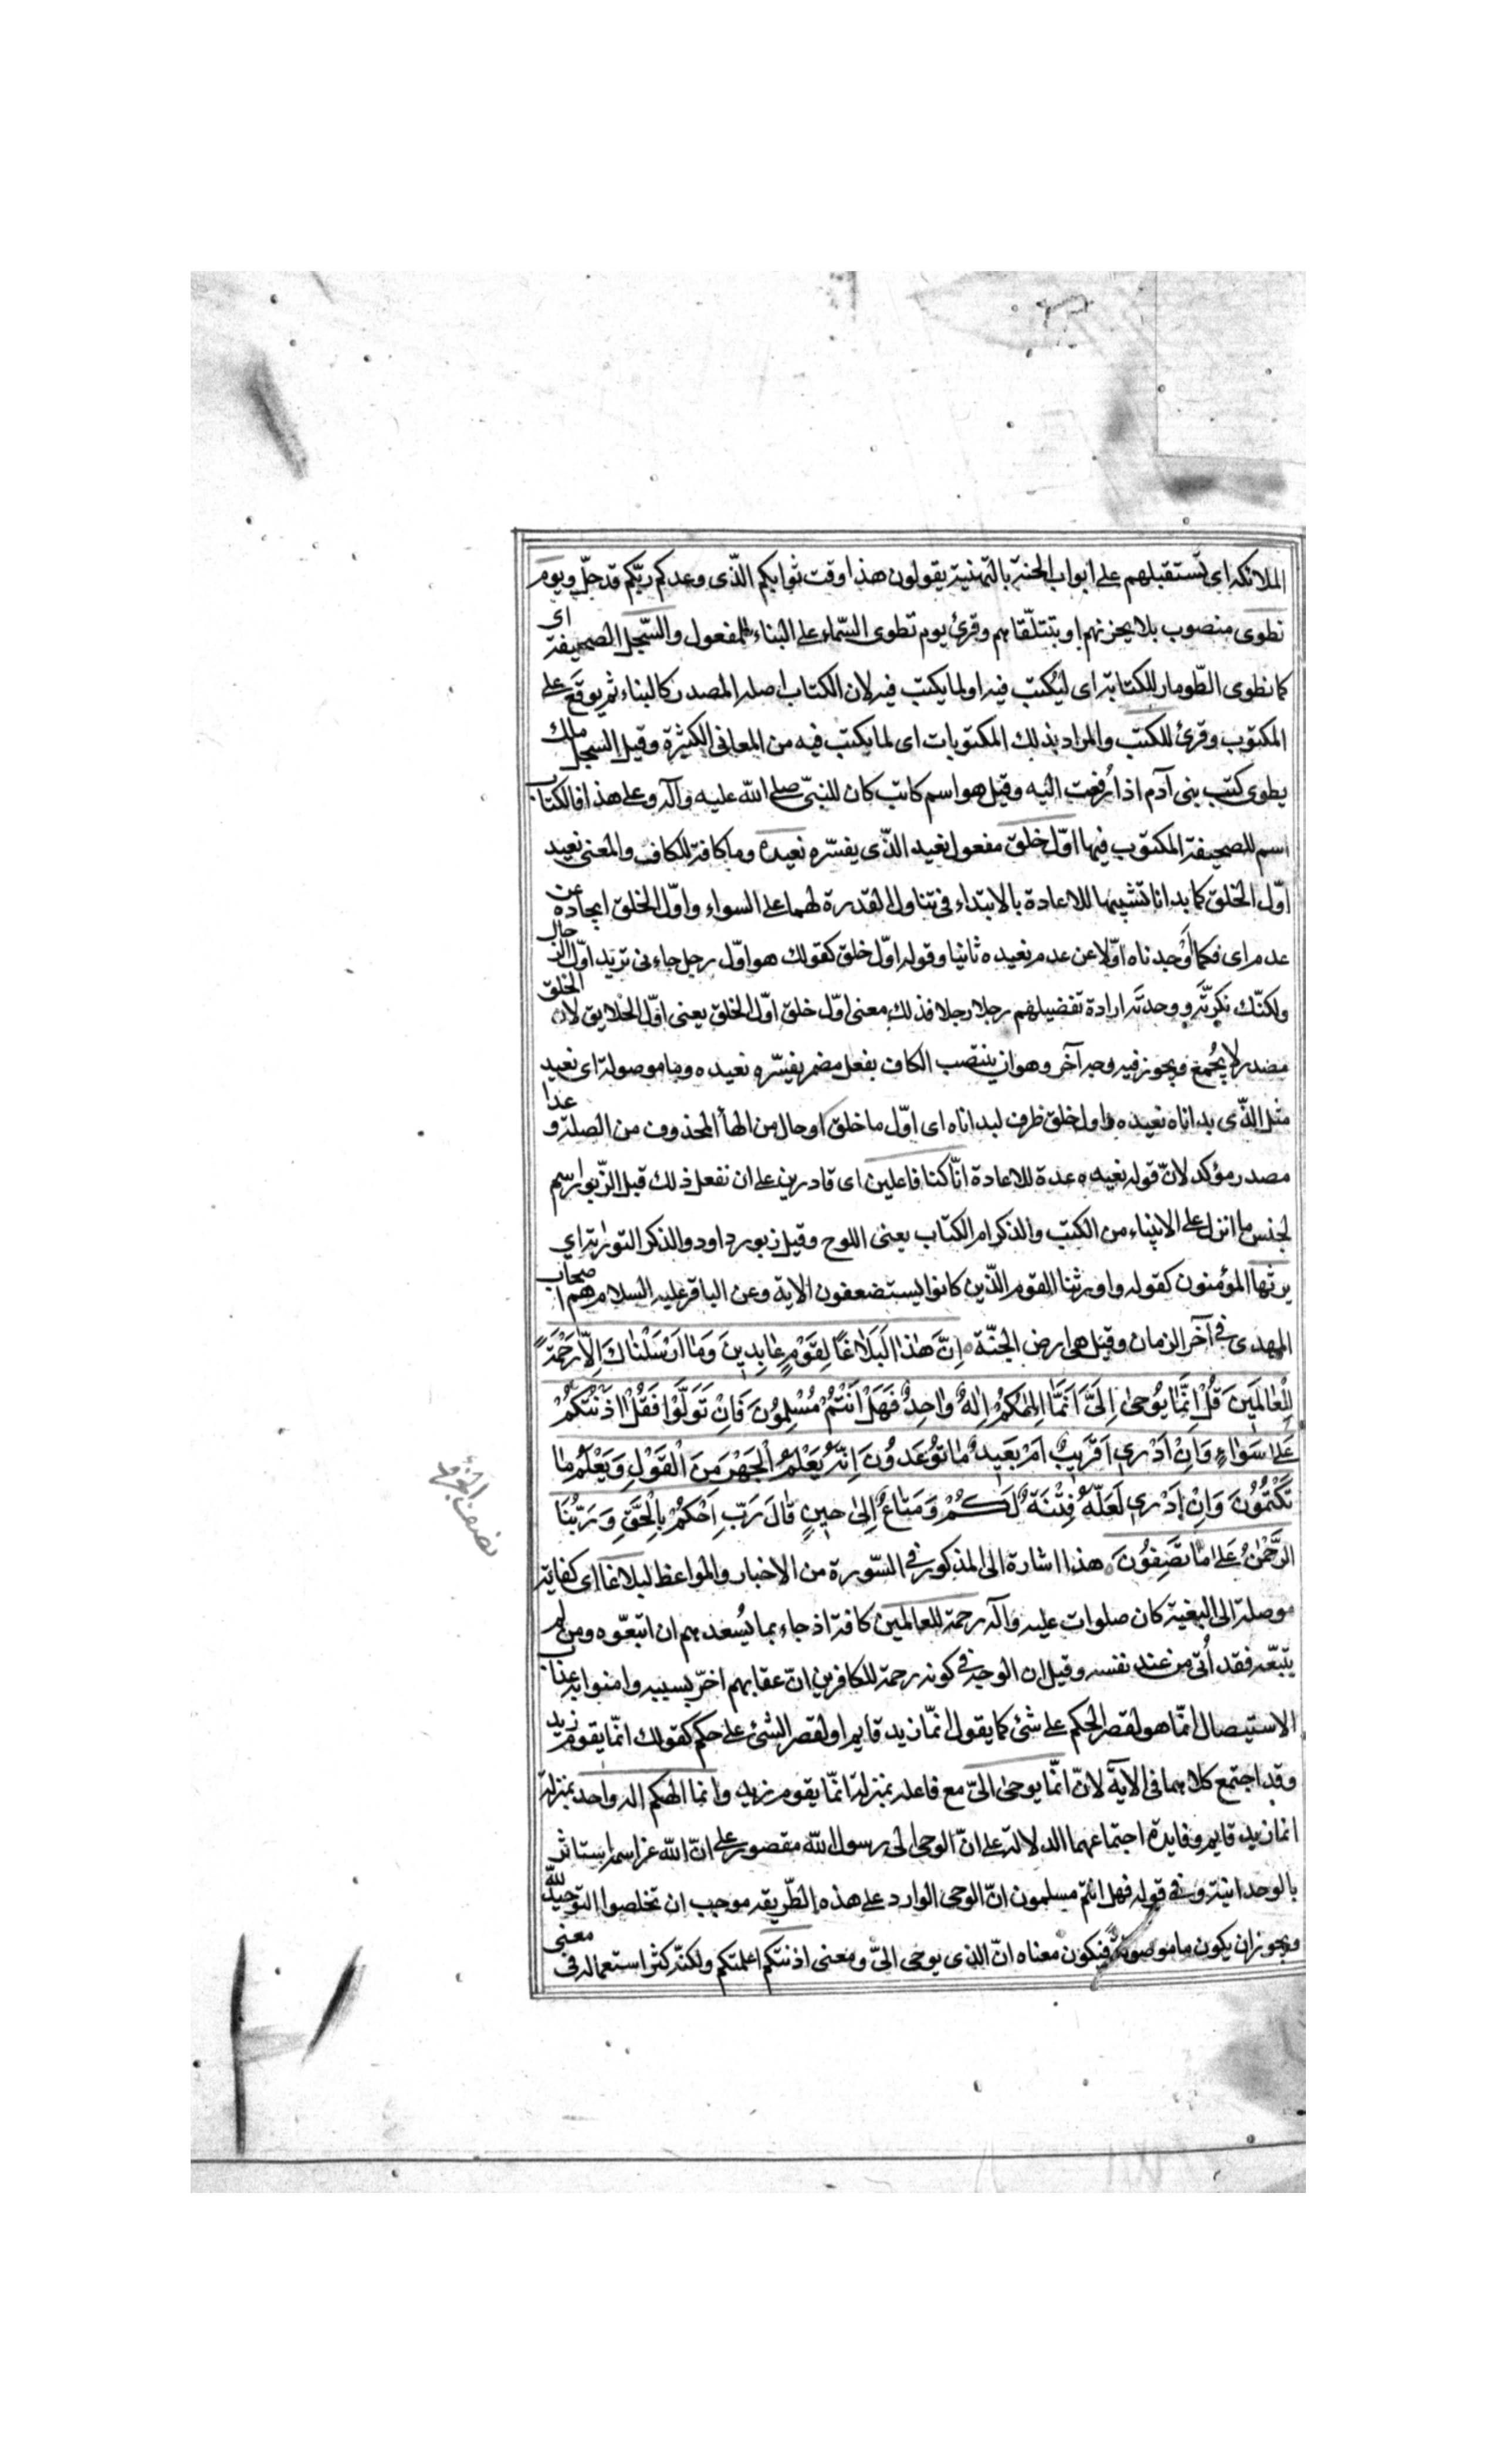 الملائكه اى تستقبلهم على ابواب الجنة بالتهنية يقولون هذا وقت ثوابكم الّذى وعدكم ربّكم قد حلّ ويوم
نطوى منصوب بلا يحزنهم او بتتلقّاهم وقرئ يوم تطوى السّماء على البناء للمفعول والسّجل الصحيفة اى
كما نطوى الطّومار للكتابة اى ليُكتب فيه او لما يكتب فيه لان الكتاب اصله المصدر كالبناء ثم يوقع على
المكتوب وقرئ للكتب والمراد بذلك المكتوبات اى لما يكتب فيه من المعانى الكثيرة وقيل السجل ملك
يطوى كتب بنى آدم اذا رُفعت اليه وقيل هو اسم كاتب كان للنبىّ صلى الله عليه وآله وعلى هذا فالكتاب
اسم للصحيفة المكتوب فيها اوّل خلق مفعول نعيد الذّى يفسّره نعيده وما كافة للكاف والمعنى نعيد
اوّل الخلق كما بدانا تشبيها للاعادة بالابتداء فى تناول القدرة لهما على السواء واوّل الخلق ايجاده عن
عدم اى فكما أوجدناه اوّلا عن عدم نعيده ثانيا وقوله اوّل خلق كقولك هو اوّل رجل جاءنى تريد اوّل الرجال
ولكنّك نكرّته ووحدته ارادة تفضيلهم رجلا رجلا فذلك معنى اوّل خلق اوّل الخلق يعنى اوّل الخلايق لان الخلق
مصدر لا يُجمع ويجوز فيه وجه آخر وهو ان ينتصب الكاف بفعل مضمر يفسّره نعيده وما موصولة اى نعيد
مثل الذّى بداناه نعيده واول خلق ظرف لبداناه اى اوّل ما خلق او حال من الهاء المحذوف من الصلة وعدا
مصدر مؤكد لانّ قوله نعيده عدة للاعادة انّا كنا فاعلين اى قادرين على ان نفعل ذلك قيل الزّبور اسم
لجنس ما انزل على الانبياء من الكتب والذكر ام الكتاب يعنى اللوح وقيل زبور داود والذكر التورية اي
يرثها المؤمنون كقوله واورثنا القوم الّذين كانوا يستضعفون الاية وعن الباقر عليه السلام هم اصحاب
المهدى فى آخر الزمان وقيل هى ارض الجنّة اِنَّ هٰذا لَبَلاٰغًا لِقَوْمٍ عٰابِدِينَ وَمٰا اَرْسَلْنٰاكَ اِلّاٰ رَحْمَةً
لِلْعٰالَمِينَ قُلْ اِنَّمٰا يُوحىٰ اِلَىَّ اَنَّمٰا اِلٰهُكُمْ اِلٰهٌ وٰاحِدٌ فَهَلْ اَنْتُمْ مُسْلِمُونَ فَاِنْ تَوَلَّوْا فَقُلْ اٰذَنْتُكُمْ
عَلىٰ سَوٰاءٍ وَاِنْ اَدْرِى اَقَرِيبٌ اَمْ بَعِيدٌ مٰا تُوعَدُونَ اِنَّهُ يَعْلَمُ الْجَهْرَ مِنَ الْقَوْلِ وَيَعْلَمُ مٰا
تَكْتُمُونَ وَاِنْ اَدْرِى لَعَلَّهُ فِتْنَةٌ لَكُمْ وَمَتٰاعٌ اِلىٰ حِينٍ قٰالَ رَبِّ احْكُمْ بِالْحَقِّ وَرَبُّنَا
الرَّحْمٰنُ عَلىٰ مٰا تَصِفُونَ هذا اشارة الى المذكور فى السّورة من الاخبار والمواعظ لبلاغا اى كفاية
موصلة الى البغية كان صلوات عليه وآله رحمة للعالمين كافة اذ جاء بما يُسعدهم ان اتبعّوه ومن لم
يتبعّه فقد أُتى من عند نفسه وقيل ان الوجه فى كونه رحمة للكافرين انّ عقابهم اخّر بسببه وامنوا به عذاب
الاستيصال انمّا هو لقصر الحكم على شئ كما يقول انمّا زيد قايم او لقصر الشئ على حكم كقولك انمّا يقوم زيد
وقد اجتمع كلاهما فى الاية لانّ انمّا يوحى الىّ مع فاعله بمنزلة انمّا يقوم زيد وانما الهكم اله واحد بمنزلة
انما زيد قايم وفايدة اجتماعهما الدلالة على انّ الوحى الى رسول الله مقصور على انّ الله عز اسمه استاثر
بالوحدانية وفى قوله فهل انتم مسلمون انّ الوحى الوارد على هذه الطّريقه موجب ان تخلصوا التوحيد لله
ويجوز ان يكون ما موصولة فيكون معناه انّ الذى يوحى الىّ ومعنى اذنتكم اعلمتكم ولكنّه كثر استعماله فى معنى
نصف الجزء